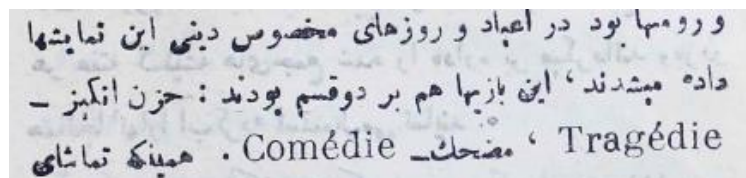 و رومیها بود در اعیاد و روزهای مخصوص دینی این نمایشها
داده میشدند ، این بازیها هم بر دوقسم بودند : حزن انگیز ـ
Tragédie ، مضحك ـ Comédie . همینکه تماشای